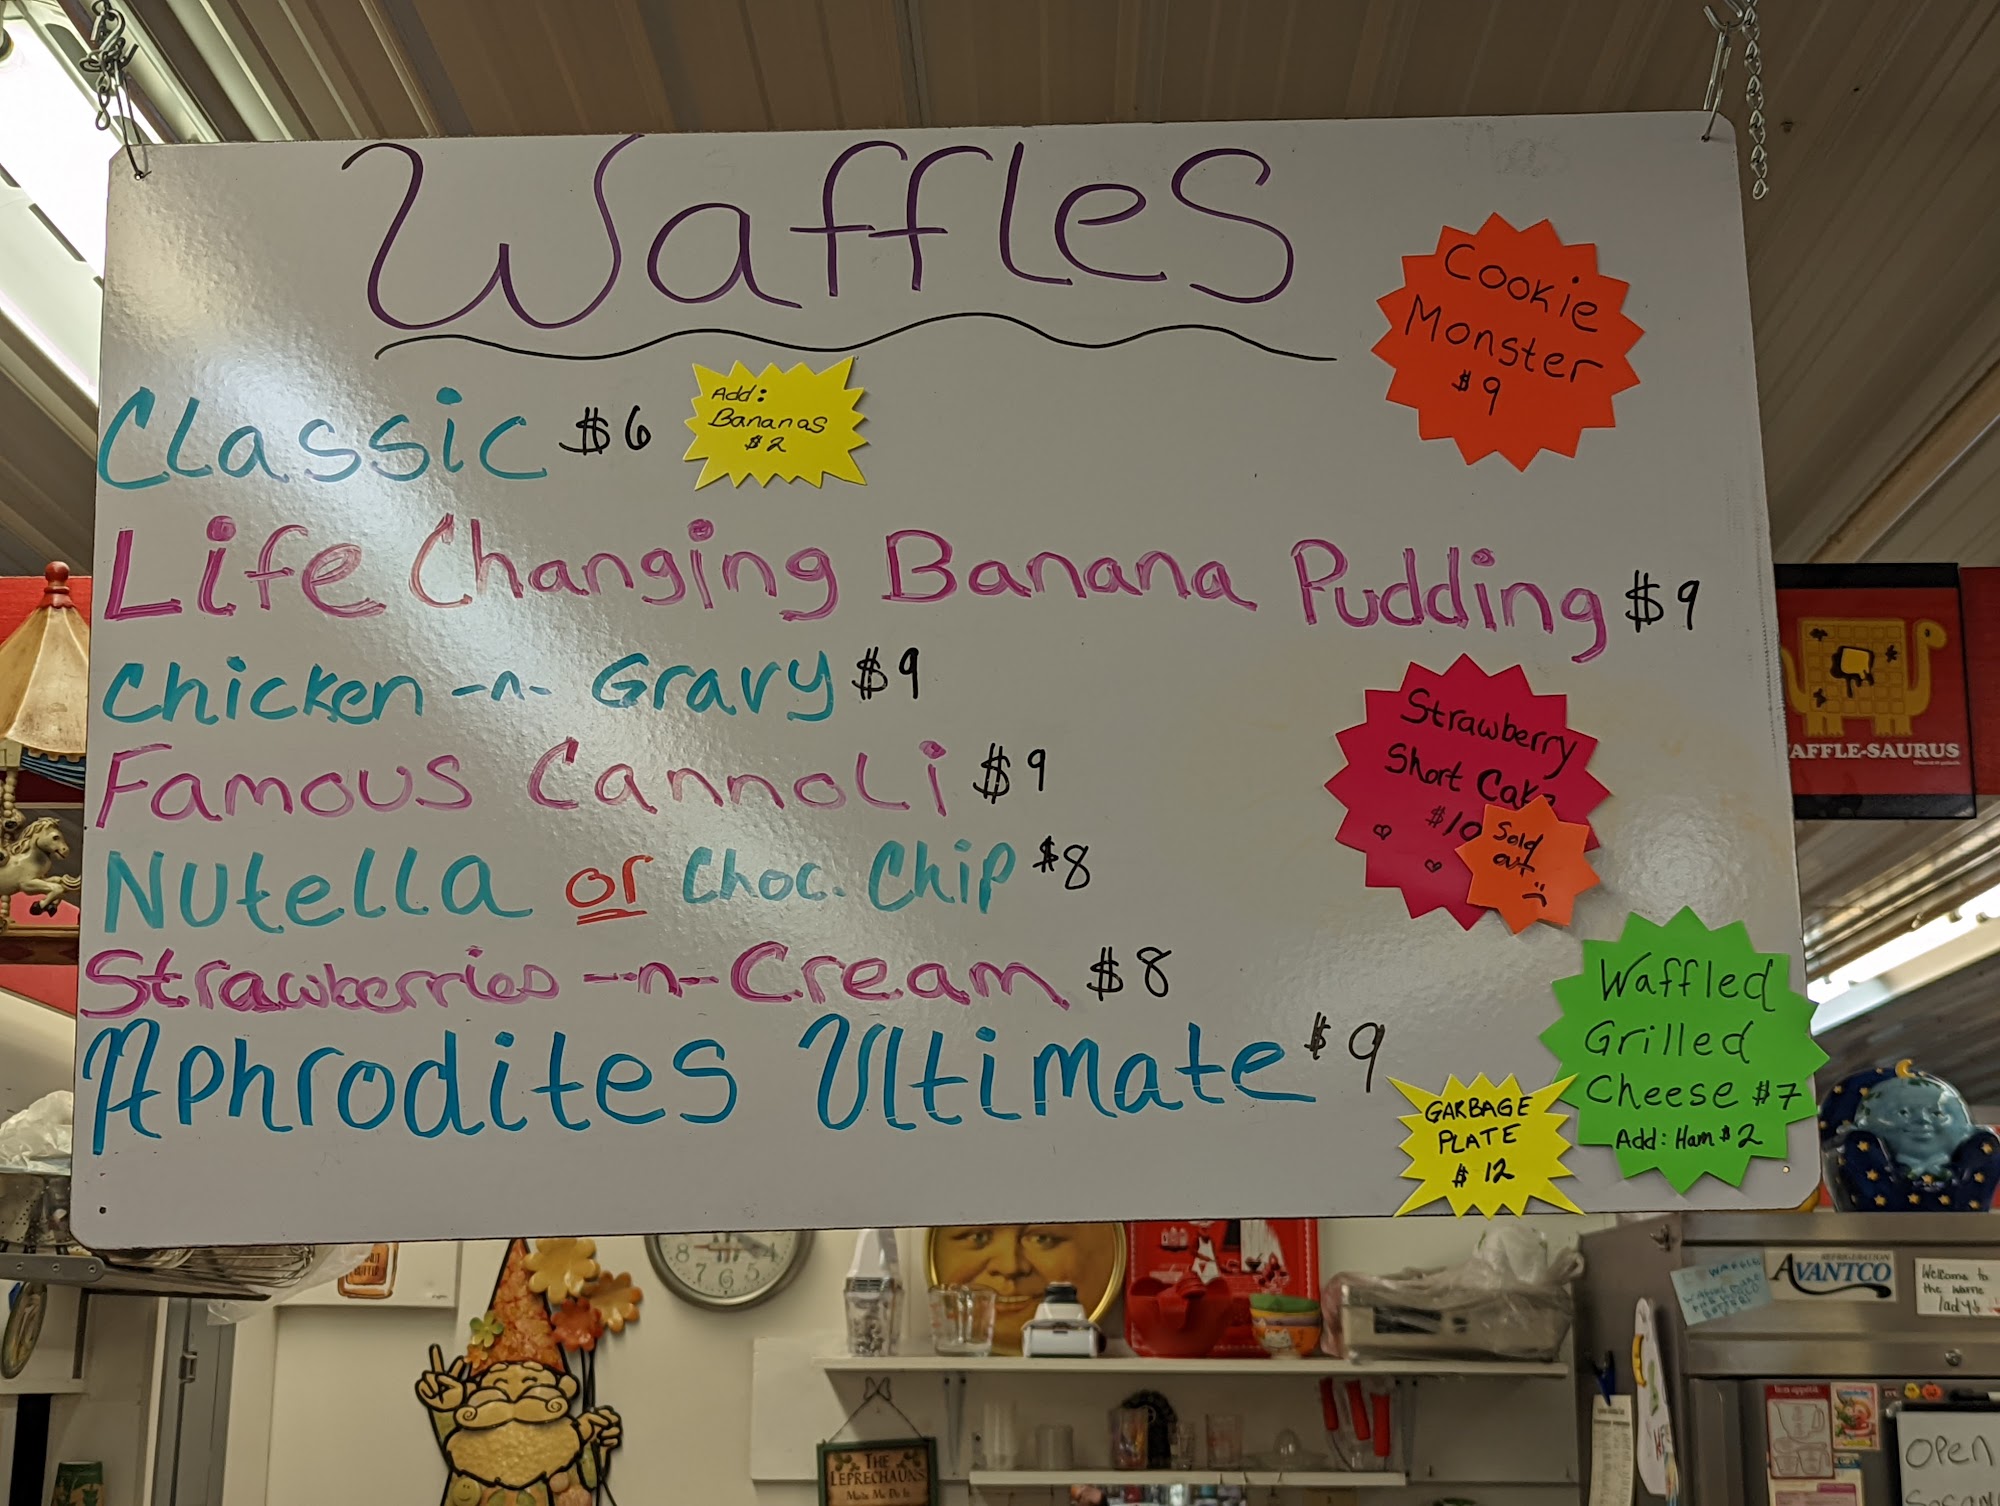 Waffles
Cookie
Monster
$9
Classic $6
Add:
Bananas
$2
Life Changing Banana Pudding $9
Chicken -n- Gravy $9
Famous Cannoli $9
Strawberry
Short Cake
$10
Sold
out
Nutella or Choc. Chip $8
Strawberries -n- Cream $8
Aphrodites Ultimate $9
Waffled
Grilled
Cheese $7
Add: Ham $2
GARBAGE
PLATE
$12
AFFLE-SAURUS
8 7 6 5 4
REFRIGERATION
AVANTCO
Welcome to
the Waffle
ladys
THE
LEPRECHAUNS
Made Me Do It
bon appetit
OPEN